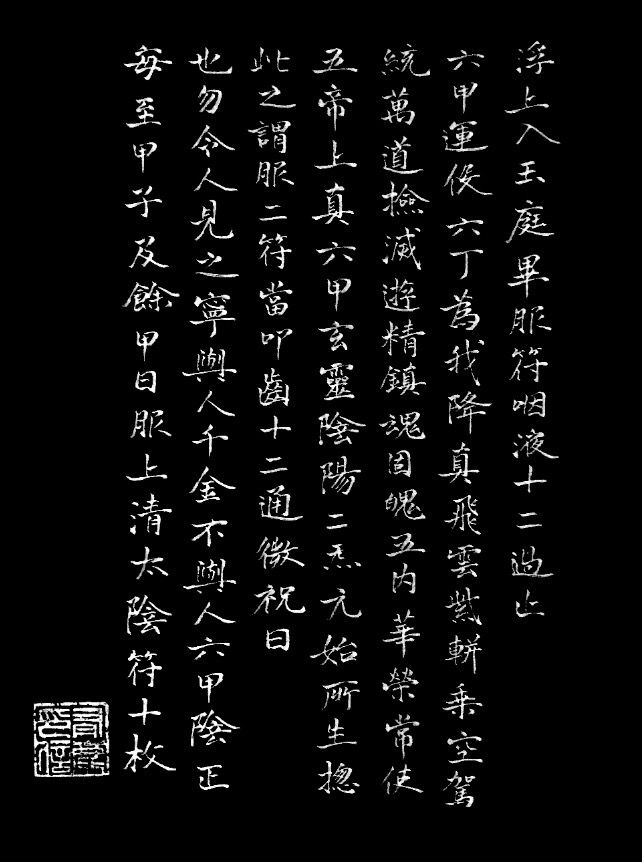 每至甲子及餘甲日服上清太陰符十枚
也勿令人見之寧與人千金不與人六甲陰正
此之謂服二符當叩齒十二通微祝曰
五帝上真六甲玄靈陰陽二炁元始所生揔
統萬道撿滅遊精鎮魂固魄五內華榮常使
六甲運役六丁為我降真飛雲紫軿乘空駕
浮上入玉庭畢服符咽液十二過止